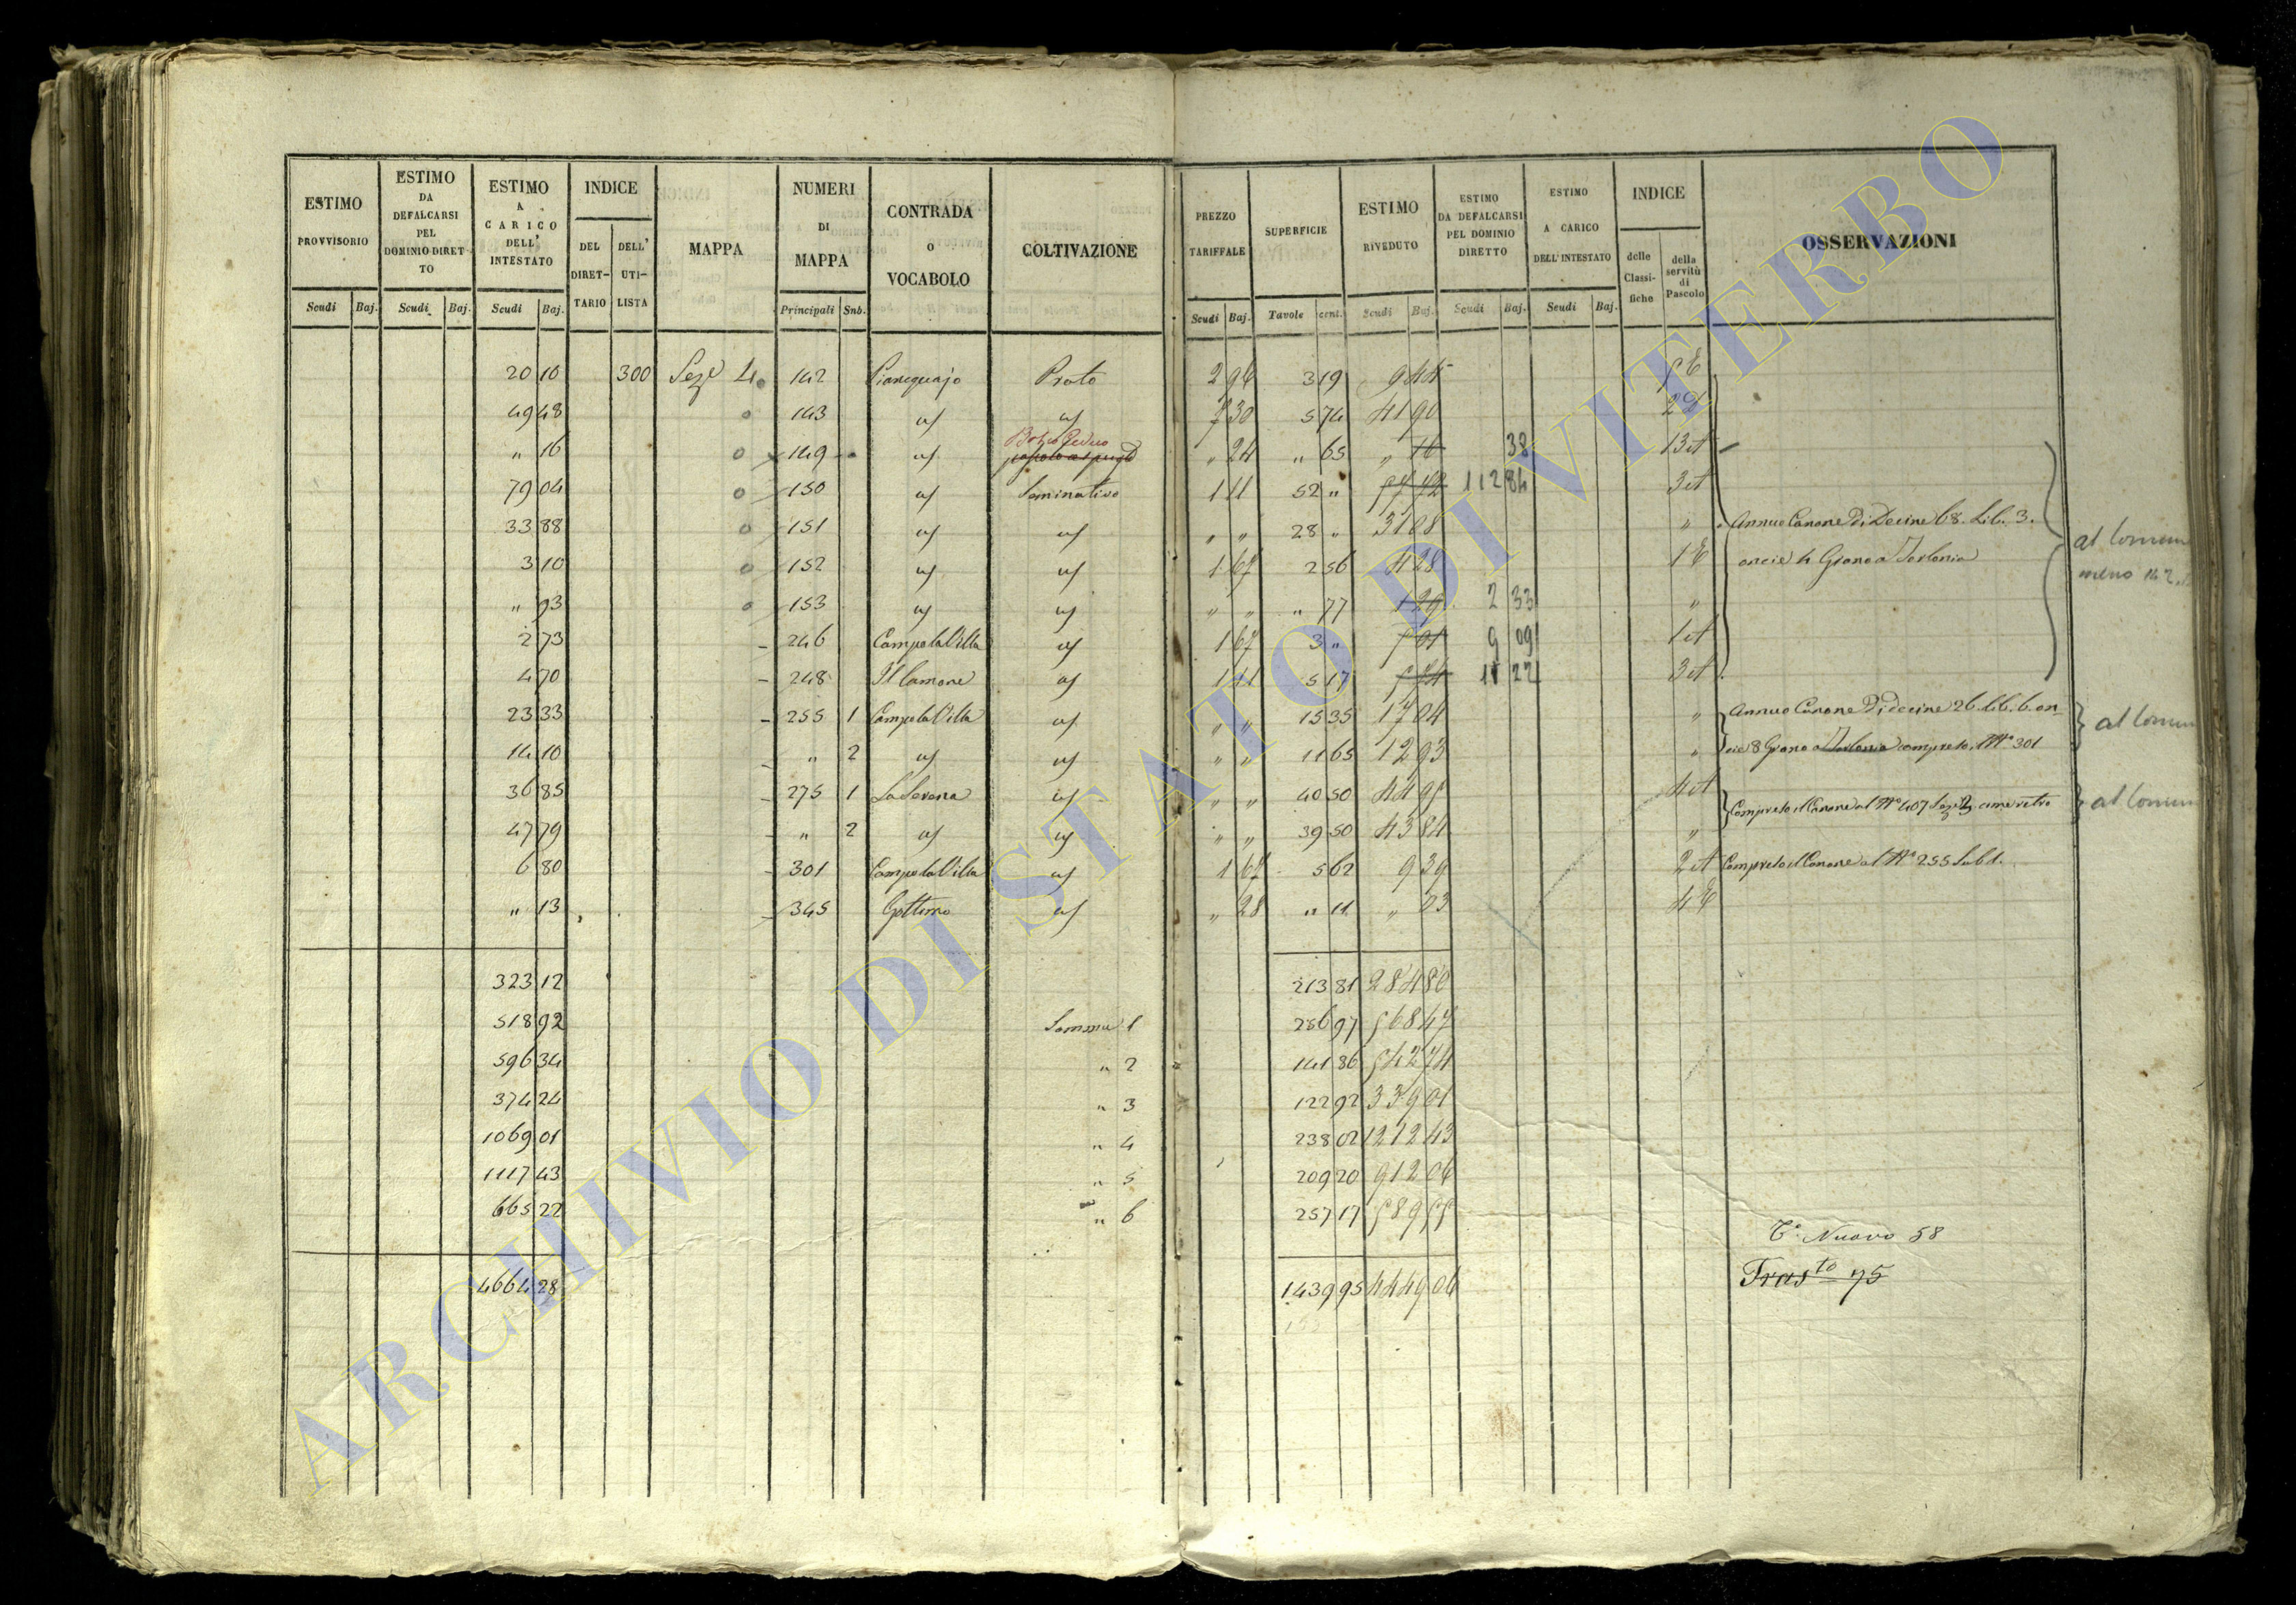 ESTIMO PROVVISORIO Scudi Baj.
ESTIMO DA DEFALCARSI PEL DOMINIO DIRETTO Scudi Baj.
ESTIMO A CARICO DELL' INTESTATO Scudi Baj.
INDICE DEL DIRETTARIO DELL' UTILISTA
MAPPA
NUMERI DI MAPPA Principali Snb.
CONTRADA o VOCABOLO
COLTIVAZIONE
PREZZO TARIFFALE Scudi Baj.
SUPERFICIE Tavole cent.
ESTIMO RIVEDUTO Scudi Baj.
ESTIMO DA DEFALCARSI PEL DOMINIO DIRETTO Scudi Baj.
ESTIMO A CARICO DELL' INTESTATO Scudi Baj.
INDICE delle Classifiche della servitù di Pascolo
OSSERVAZIONI
20 10 300 Sez.e 4. 142 Pianeguajo Prato 2 96 3 19 9 44 5 E
49 48 143 " " 7 30 5 74 41 90 2 D
" 16 149 " " 24 " 65 " 16 38 13 A
79 04 150 " Seminativo 1 11 52 " 57 72 112 84 3 A
33 88 151 " " " " 28 " 31 08 " Annuo Canone di Decine 68. Lib. 3.
3 10 152 " " 1 67 2 56 4 28 1 E oncie 4 Grano a Torlonia
" 93 153 " " " " " 77 1 29 2 33 "
2 73 246 Campo la Villa " 1 67 3 " 5 01 9 09 1 A
4 70 248 Il Camone " 1 11 5 17 5 74 11 22 3 A
23 33 255 1 Campo la Villa " " " 15 35 17 04 " Annuo Canone di decine 26. lib. 6. on=
14 10 " 2 " " " " 11 65 12 93 " cie 8 Grano a Torlonia compreso il N.° 301
36 85 275 1 La Serena " " " 40 50 44 95 4 A Compreso il Canone al N.° 407 Sez. 2. come retro
47 79 " 2 " " " " 39 50 43 84 "
6 80 301 Campo la Villa " 1 67 5 62 9 39 2 A Compreso il Canone al N.° 255 Sub 1.
" 13 345 " " 28 " 11 " 03 4 E
al Comun
meno 142
al Comun
al Comun
323 12 213 81 284 80
518 92 Somma 1 256 97 568 47
596 34 " 2 141 86 542 74
374 24 " 3 122 92 339 01
1069 01 " 4 238 02 1212 43
1117 43 " 5 209 20 912 06
665 22 " 6 257 17 589 55
4664 28 1439 95 4449 06
T.° Nuovo 58
Tras.to 75
ARCHIVIO DI STATO DI VITERBO